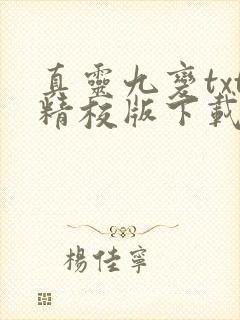 真靈九變txt
精校版下載
楊佳寧